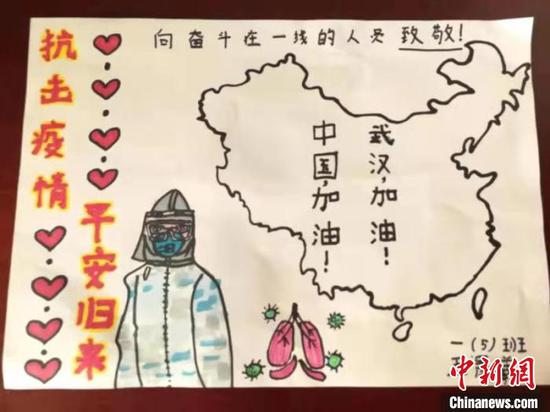 向奋斗在一线的人员致敬！
抗击疫情
平安归来
武汉，加油！
中国，加油！
一（5）班
中新网
Chinanews.com